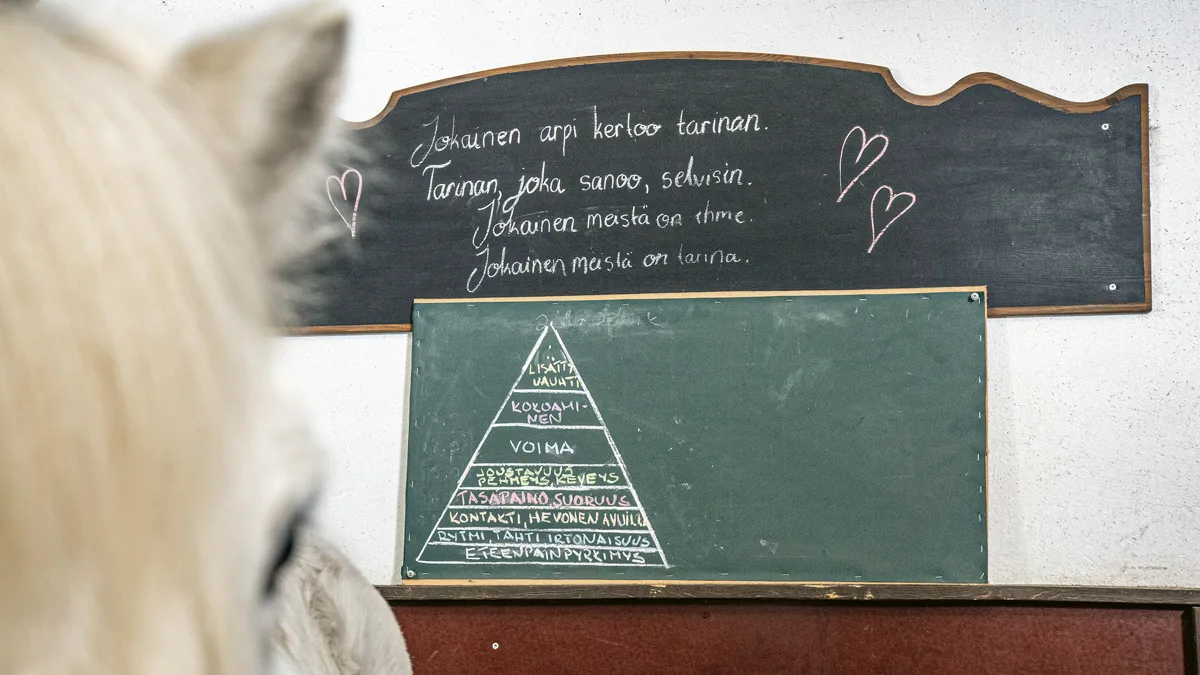 Jokainen arpi kertoo tarinan.
Tarinan, joka sanoo, selvisin.
Jokainen meistä on ihme.
Jokainen meistä on tarina.
LISÄTTY
VAUHTI
KOKOAMI-
NEN
VOIMA
JOUSTAVUUS
PEHMEYS, KEVEYS
TASAPAINO, SUORUUS
KONTAKTI, HEVONEN AVUILLA
RYTMI, TAHTI IRTONAISUUS
ETEENPÄINPYRKIMYS